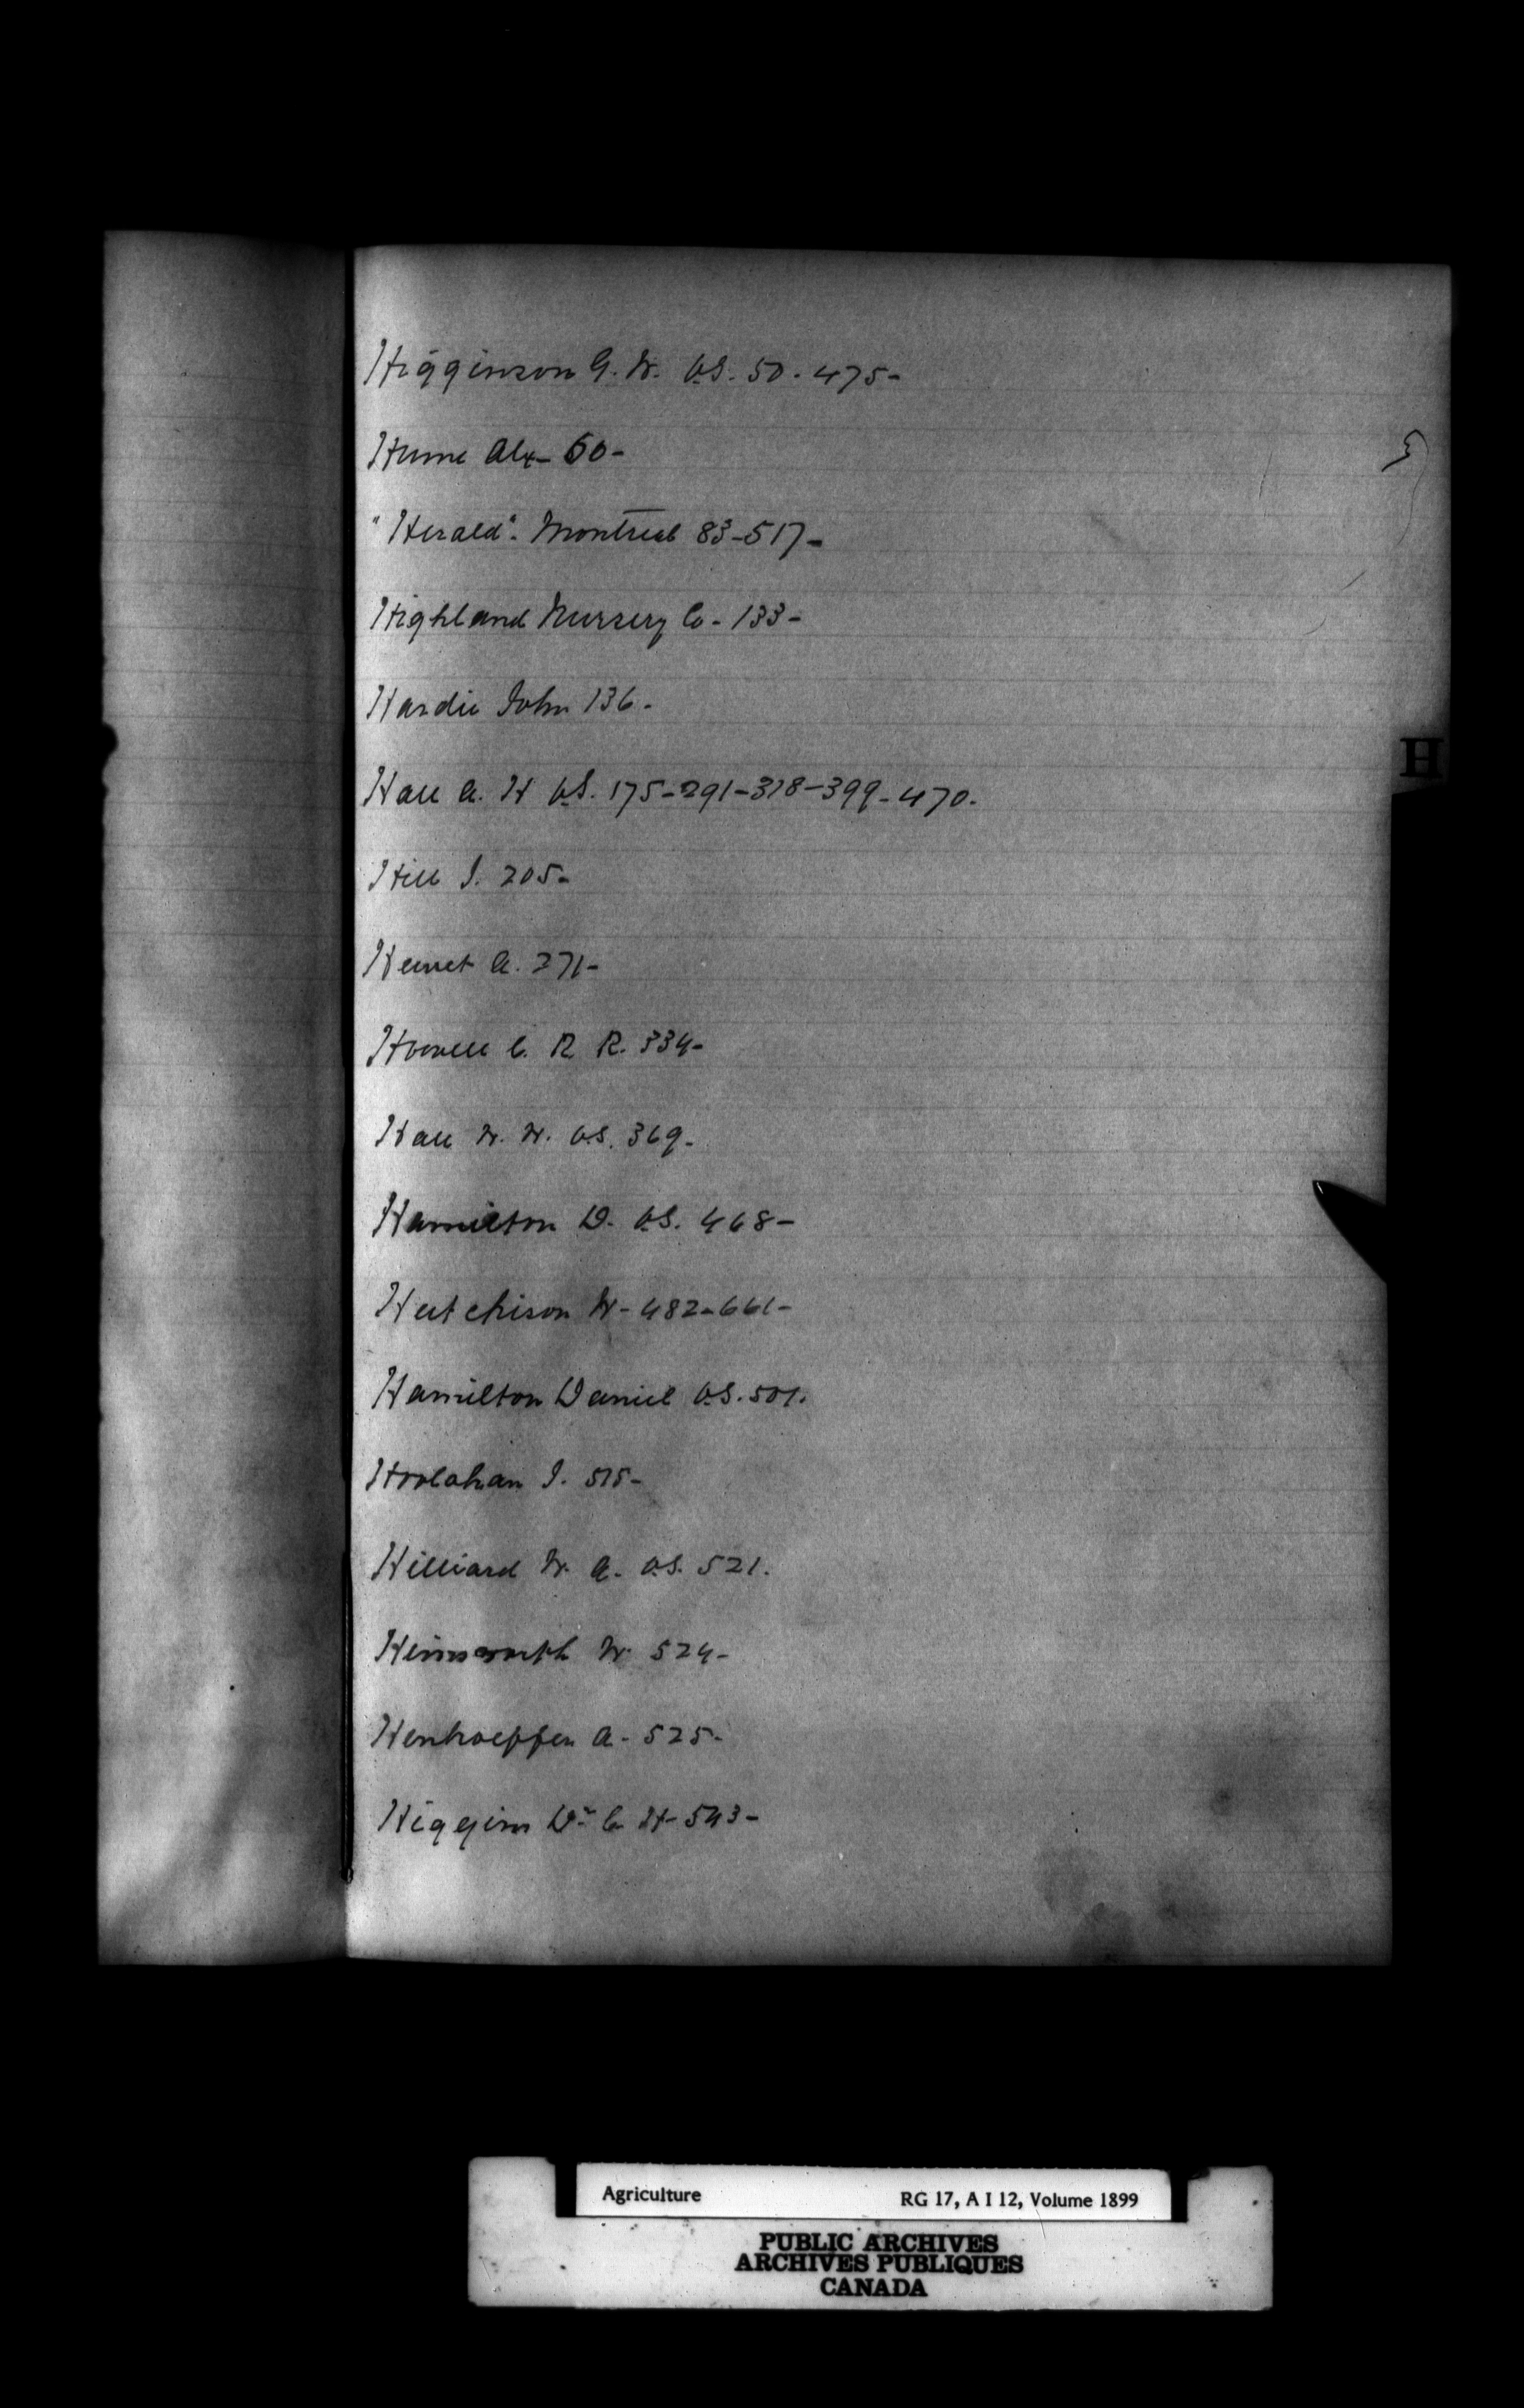 Higginson G. W. V.S. 50. 475-
Hume Alx- 60-
"Herald". Montreal 83-517-
Highland Nursery Co- 133-
Hardie John 136.
H
Hall A. H V.S. 175-291-318-399-470.
Hill J. 205-
A. 271-
Howell C. R R. 334-
Hall W. W. V.S. 369-
Hamilton D. V.S. 468-
Hutchison W- 482-661-
Hamilton Daniel V.S. 501.
Hoolahan J. 515-
Hilliard W. A. V.S. 521.
Himsworth W. 524-
A- 525-
Higgins Dr C H- 543-
Agriculture RG 17, A I 12, Volume 1899
PUBLIC ARCHIVES
ARCHIVES PUBLIQUES
CANADA